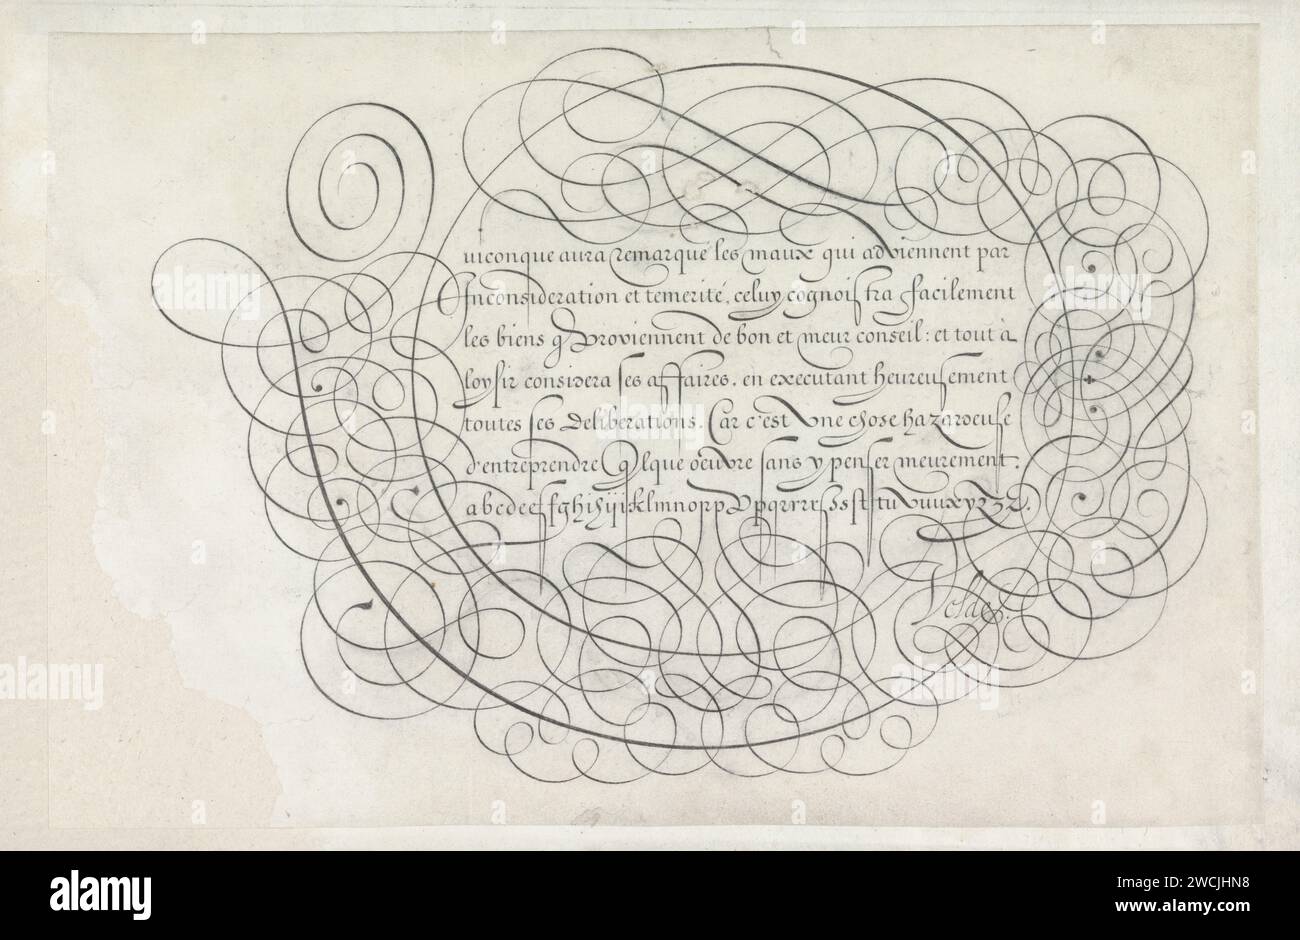 Quiconque aura remarqué les maux qui adviennent par
Inconsideration et temerité, celuy cognoistra facilement
les biens q̃ Proviennent de bon et meur conseil: et tout à
loysir considera ses affaires. en executant heureusement
toutes ses deliberations. Car c'est une chose hazardeuse
d'entreprendre q̃lque oeuvre sans y penser meurement.
Velde f.
alamy
Image ID: 2WCJHN8
www.alamy.com